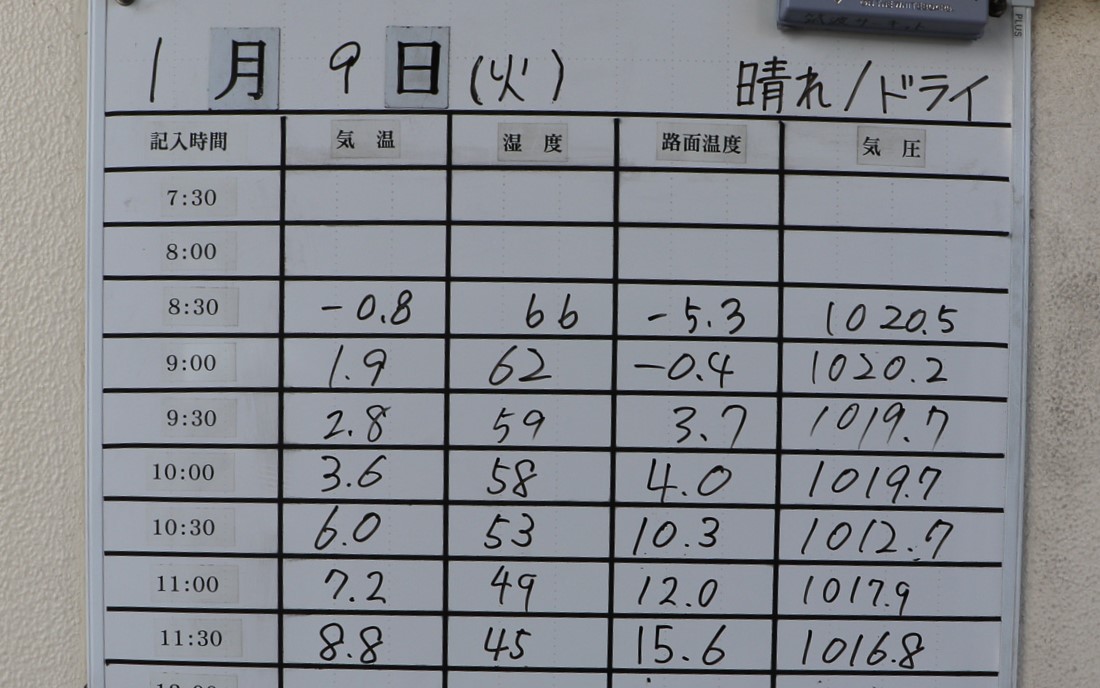 PLUS
1月9日(火) 晴れ/ドライ
記入時間 気温 湿度 路面温度 気圧
7:30
8:00
8:30 -0.8 66 -5.3 1020.5
9:00 1.9 62 -0.4 1020.2
9:30 2.8 59 3.7 1019.7
10:00 3.6 58 4.0 1019.7
10:30 6.0 53 10.3 1012.7
11:00 7.2 49 12.0 1017.9
11:30 8.8 45 15.6 1016.8